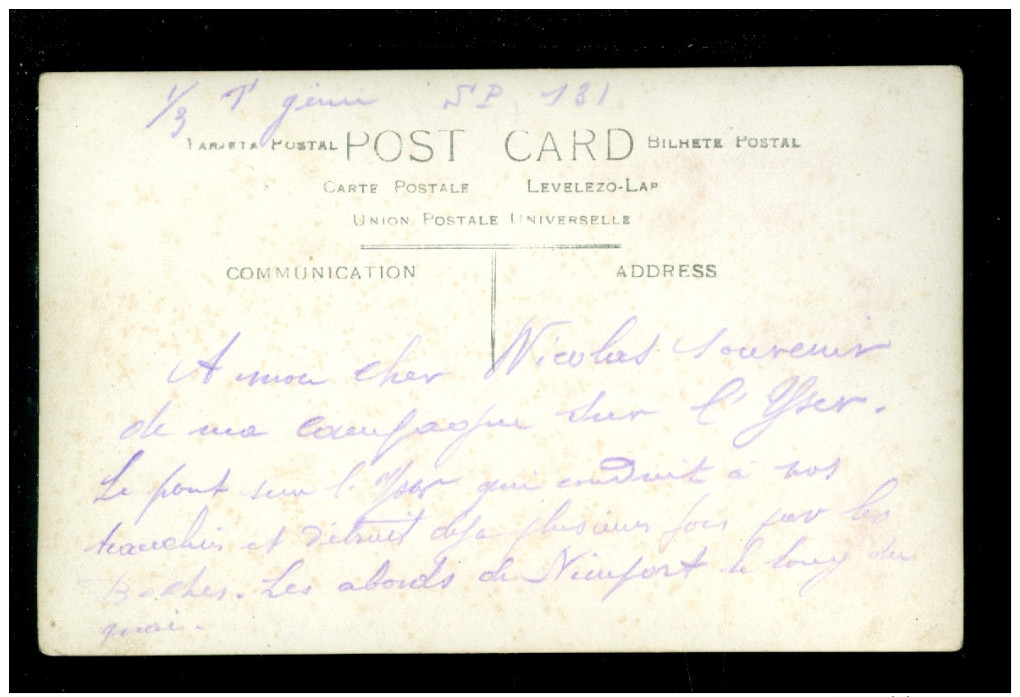 1/3 T génie SP 131
TARJETA POSTAL POST CARD BILHETE POSTAL
CARTE POSTALE LEVELEZO-LAP
UNION POSTALE UNIVERSELLE
COMMUNICATION ADDRESS
A mon cher Nicolas souvenir
de ma campagne sur l'Yser.
Le pont sur l'Yser qui conduit à nos
tranchées et détruit deja plusieurs fois par les
Boches. Les abords de Nieuport le long du
quai.